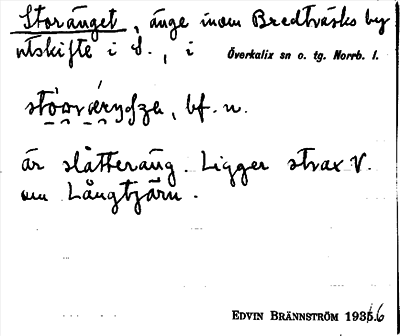 Storänget, änge inom Bredträsks by
utskifte i S., i Överkalix sn o. tg. Norrb. l.
bf. n.
är slåtteräng. Ligger strax V.
om Långtjärn.
EDVIN BRÄNNSTRÖM 1936